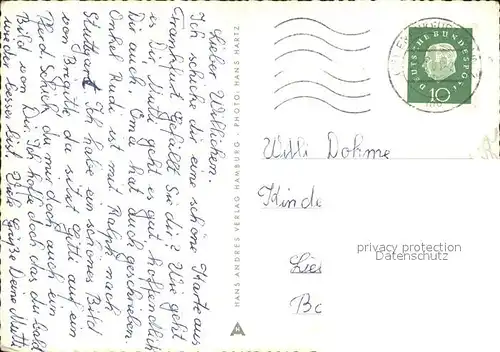 Lieber Willichen.
Ich schicke dir eine schöne Karte aus
Frankfurt. Gefällt Sie dir? Wie geht
es Dir. Mutti geht es gut, hoffendlich
Dir auch. Oma hat auch geschrieben.
Onkel Rudi ist mit Ralph nach
Stuttgart. Ich habe ein schönes Bild
von Brigitte, da sitzt Gitti auf ein
Pferd. Schick du mir doch auch ein
Bild von Dir. Ich hoffe doch das du bald
wieder besser bist. Viele Grüße Deine Mutti
HANS ANDRES VERLAG HAMBURG · PHOTO: HANS HARTZ
DEUTSCHE BUNDESPOST
10
Willi Dohme
Kinde
Lie
Bo
privacy protection
Datenschutz